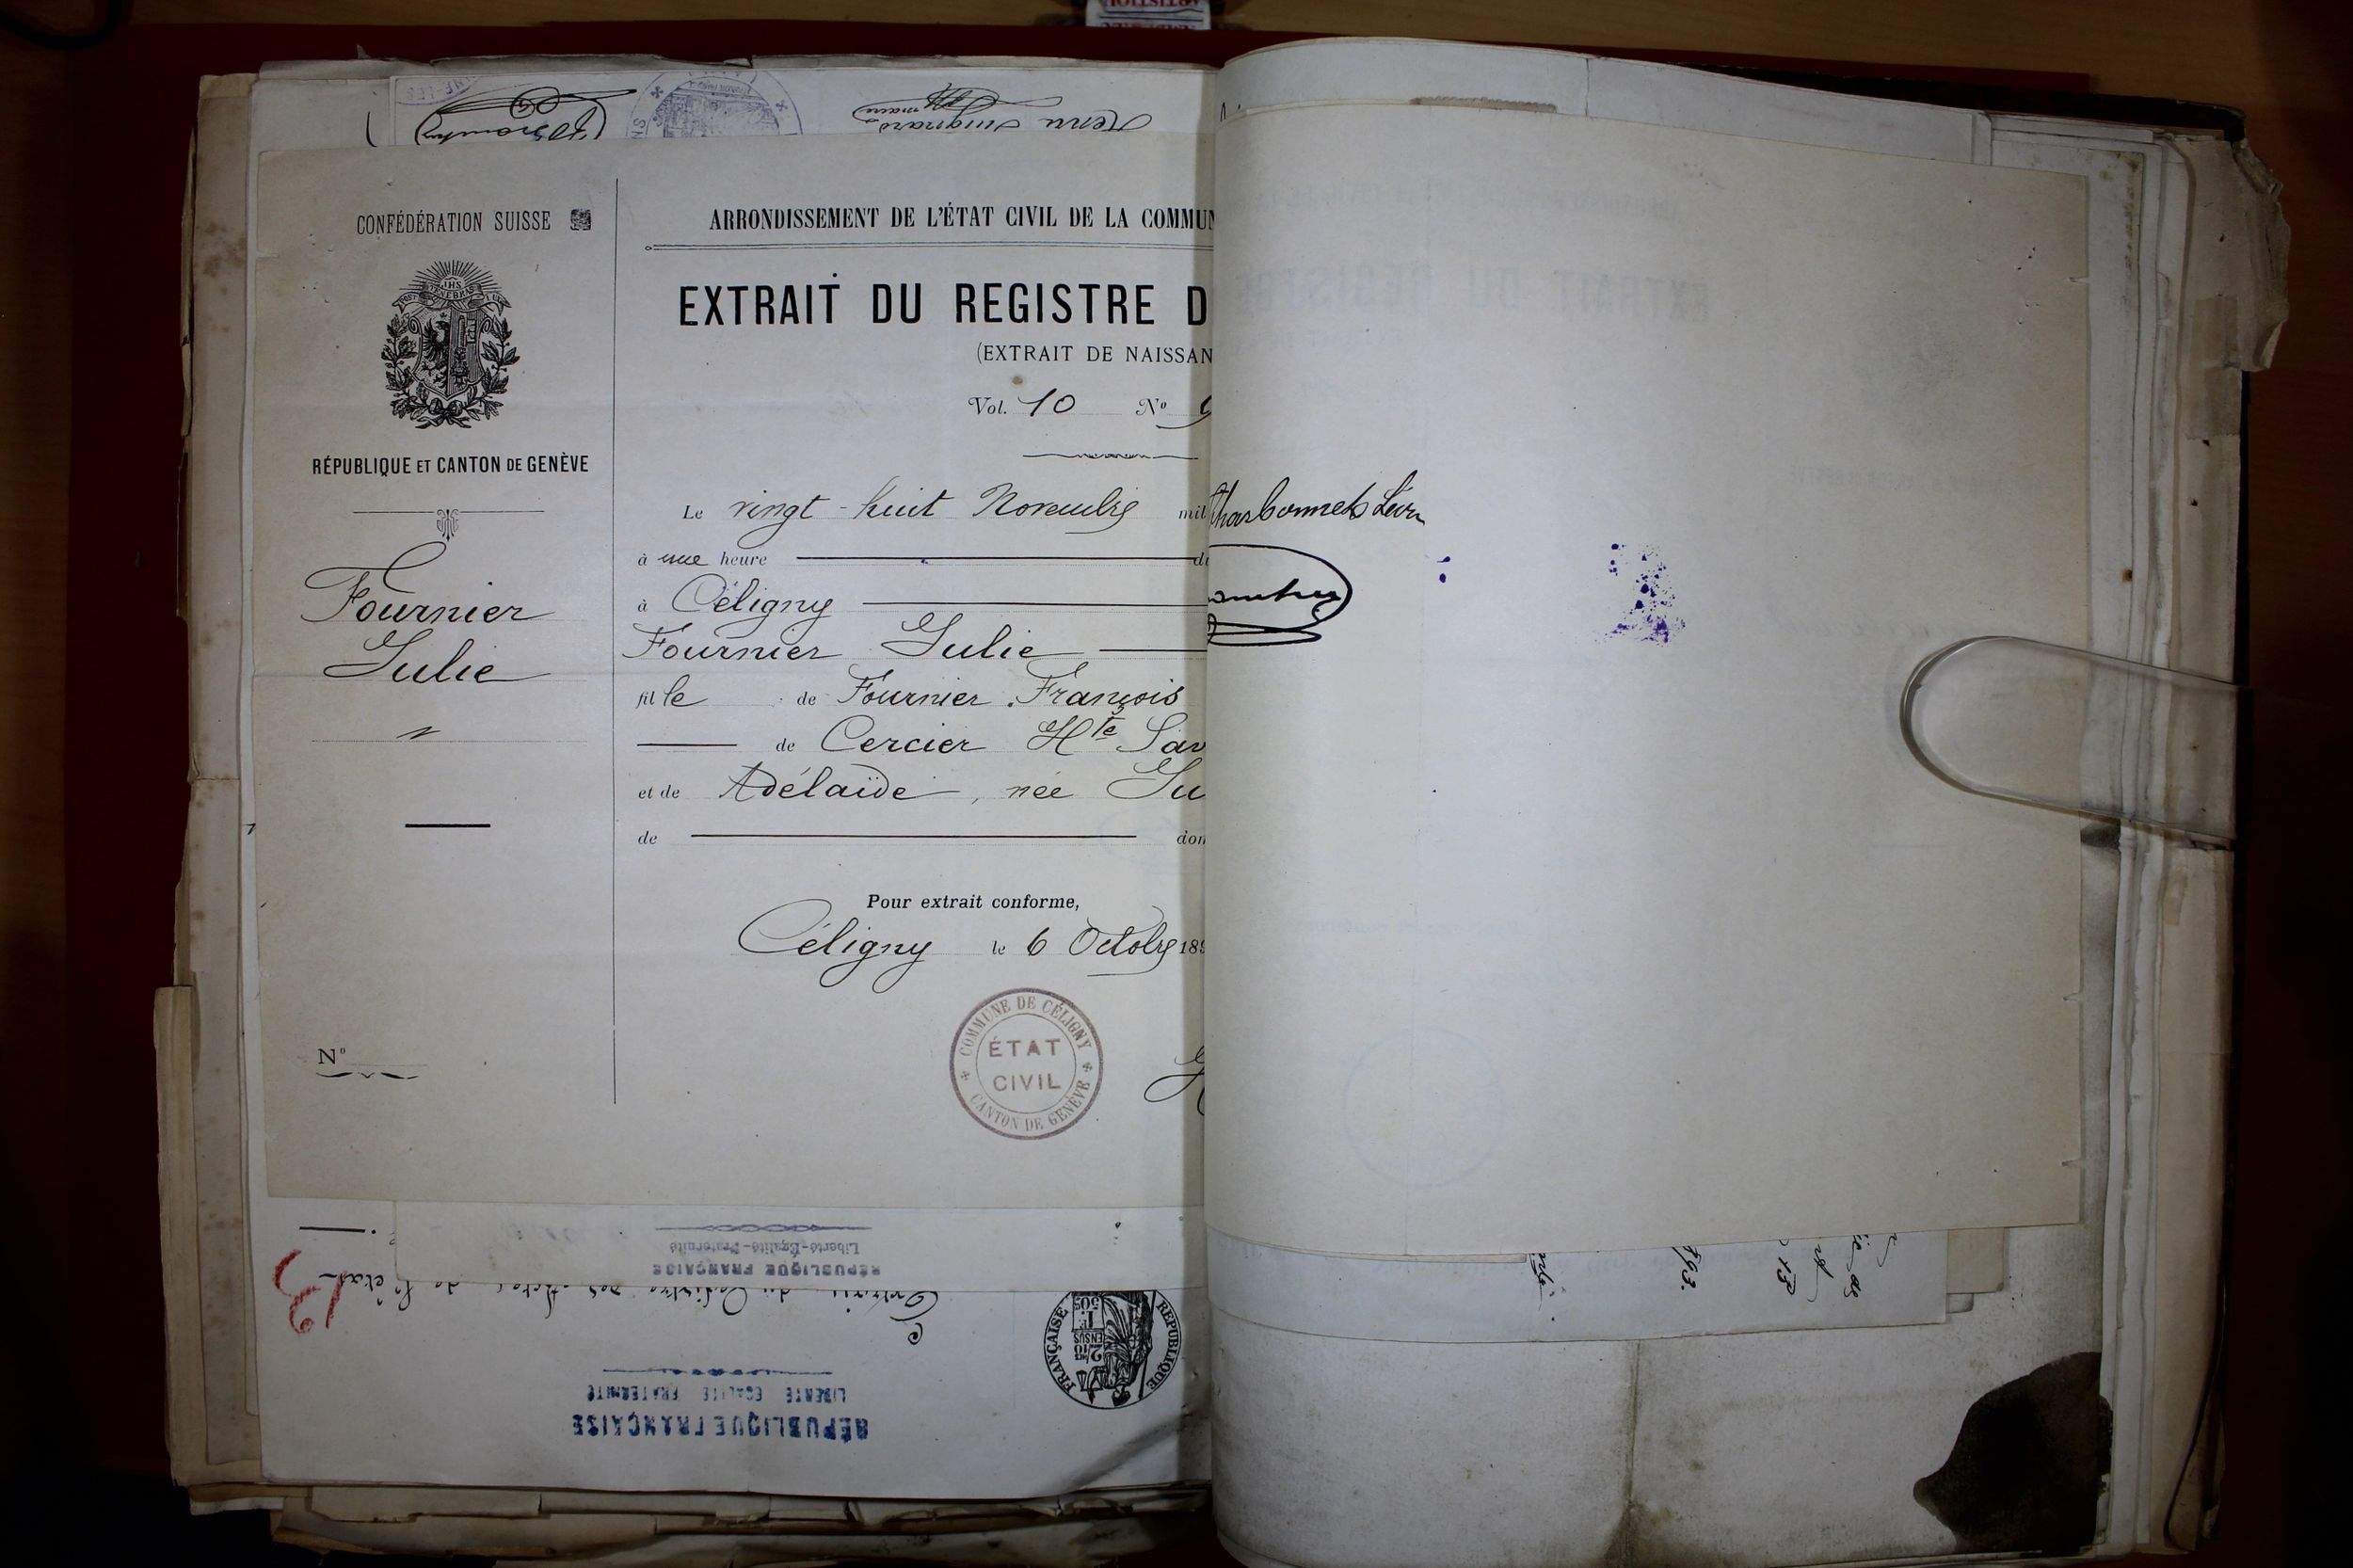 CONFÉDÉRATION SUISSE
IHS
RÉPUBLIQUE ET CANTON DE GENÈVE
Fournier
Julie
N°
ARRONDISSEMENT DE L'ÉTAT CIVIL DE LA COMMUN
EXTRAIT DU REGISTRE D
(EXTRAIT DE NAISSAN
Vol. 10 N° 9
Le vingt-huit Novembre mil
à une heure
à Céligny
Fournier Julie
fille de Fournier François
de Cercier Hte Sav
et de Adélaïde, née Ju
de dom
Pour extrait conforme,
Céligny le 6 Octobre 189
COMMUNE DE CÉLIGNY
ÉTAT
CIVIL
CANTON DE GENÈVE
Liberté-Égalité-Fraternité
RÉPUBLIQUE FRANÇAISE
du Registre des Actes de l'état
13
LIBERTÉ ÉGALITÉ FRATERNITÉ
RÉPUBLIQUE FRANÇAISE
RÉPUBLIQUE FRANÇAISE
2/10 EN SUS
1F.
50c
Charbonnets Léon